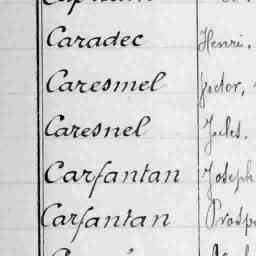 Caradec Henri,
Caresmel
Caresnel Jules.
Carfantan Joseph
Carfantan Prosp